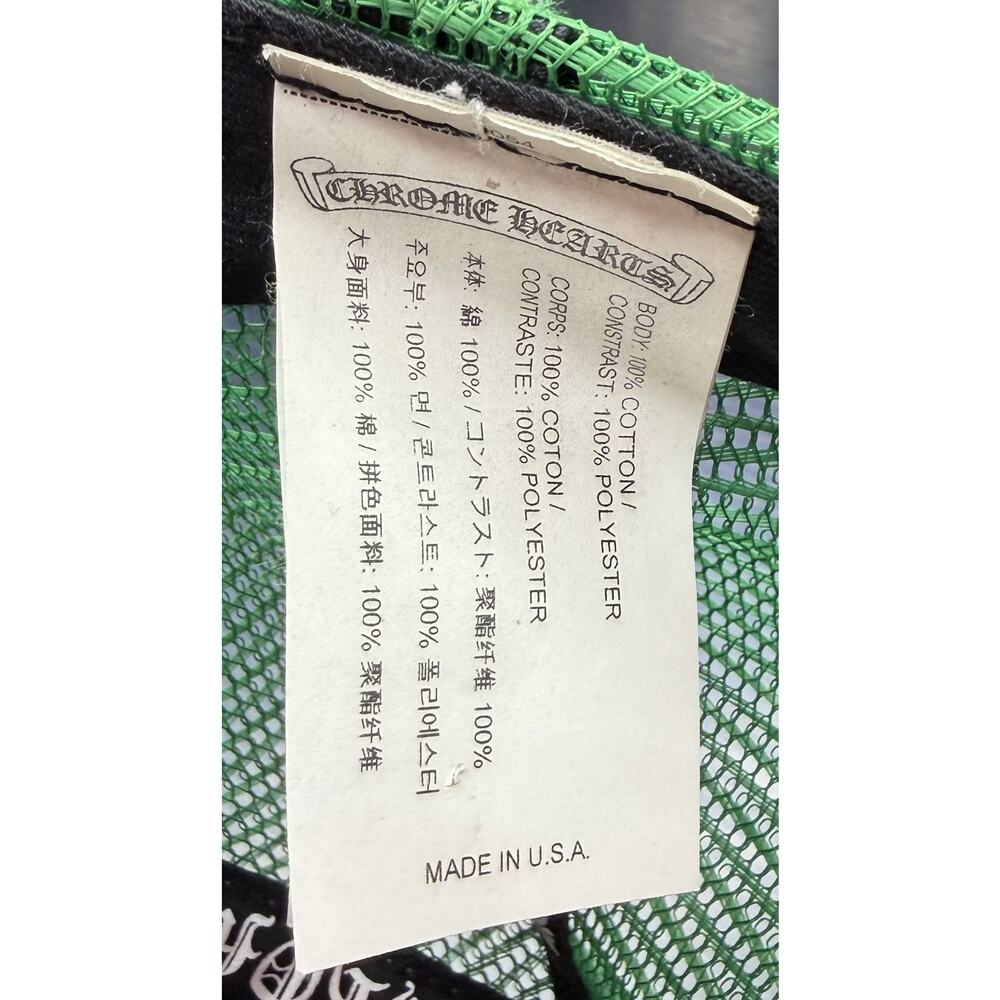 054
CHROME HEARTS
BODY: 100% COTTON /
CONSTRAST: 100% POLYESTER
CORPS: 100% COTON /
CONTRASTE: 100% POLYESTER
本体: 綿 100% / コントラスト: 聚酯纤维 100%
주요부: 100% 면 / 콘트라스트: 100% 폴리에스터
大身面料: 100% 棉 / 拼色面料: 100% 聚酯纤维
MADE IN U.S.A.